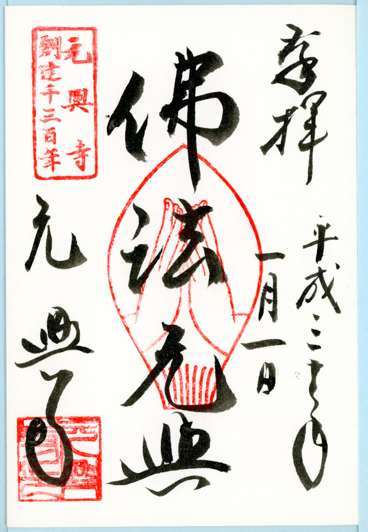 奉拝
平成三十年
一月一日
佛法元興
元興寺
創建千三百年
元興寺